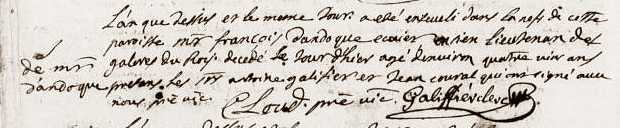 L'an que dessus et le mesme Jour a esté enseveli dans la nef de cette
paroisse mr françois dandoque ecuier ensien lieutenan des
galeres du Roy. decedé le Jour d'hier agé denviron quatre vins ans
de mr
dandoque
presens les srs antoine galifier et Jean coural qui ont signé avec
nous pre vic.
Cloud. pre vic. Galiffier clerc